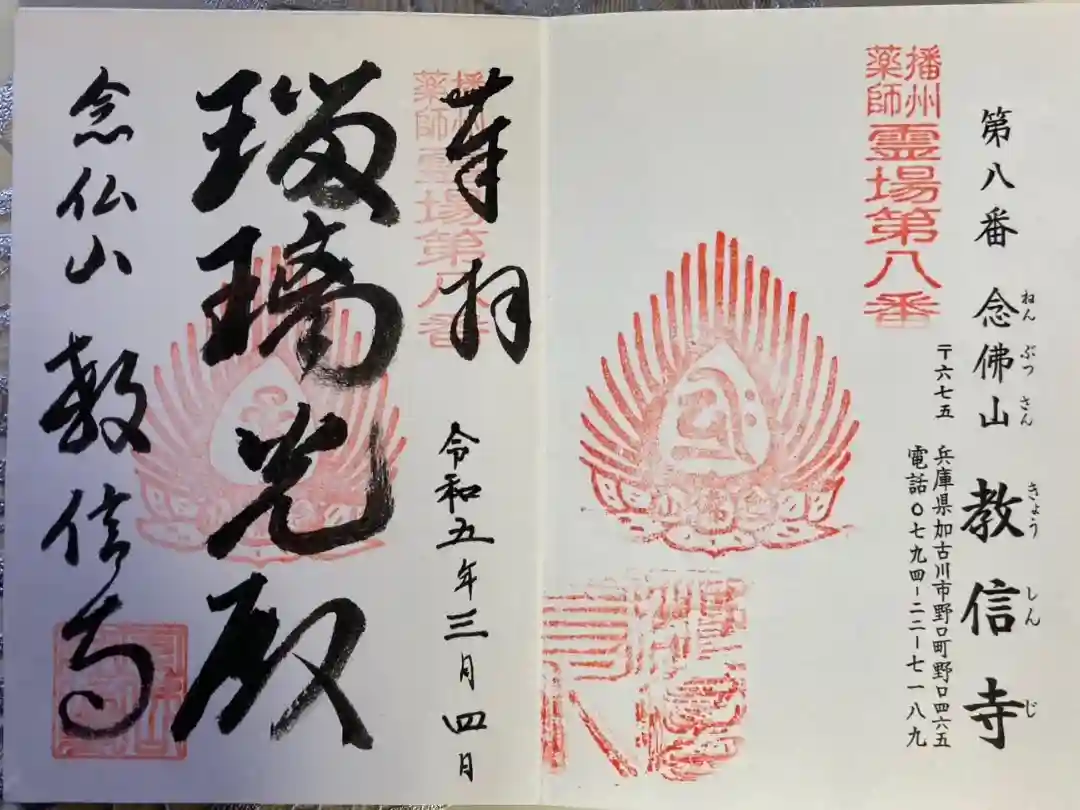 播州
薬師
霊場第八番
第八番 念佛山 教信寺
ねん ぶつ さん きょう しん じ
〒六七五 兵庫県加古川市野口町野口四六五
電話〇七九四-二二-七一八九
奉拝
播州
薬師
霊場第八番
令和五年三月四日
瑠璃光殿
念仏山 教信寺